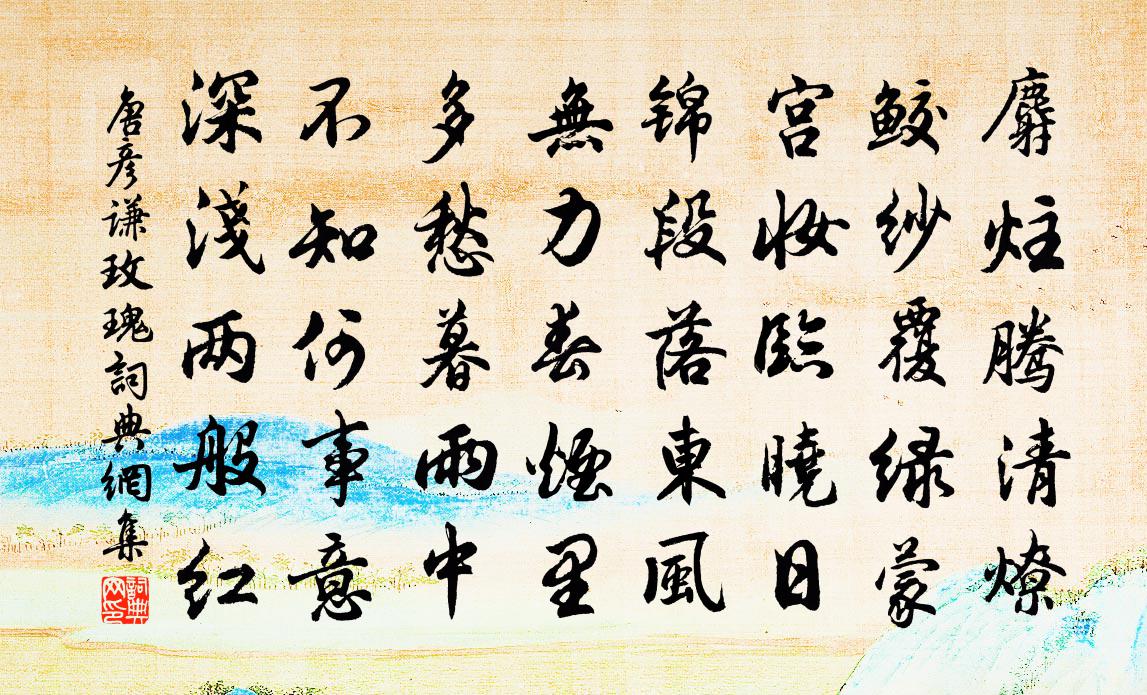 麝炷腾清燎
鲛纱覆绿蒙
宫妆临晓日
锦段落東風
無力春烟里
多愁暮雨中
不知何事意
深淺两般红
唐彦谦玫瑰詞典網集
詞典网印